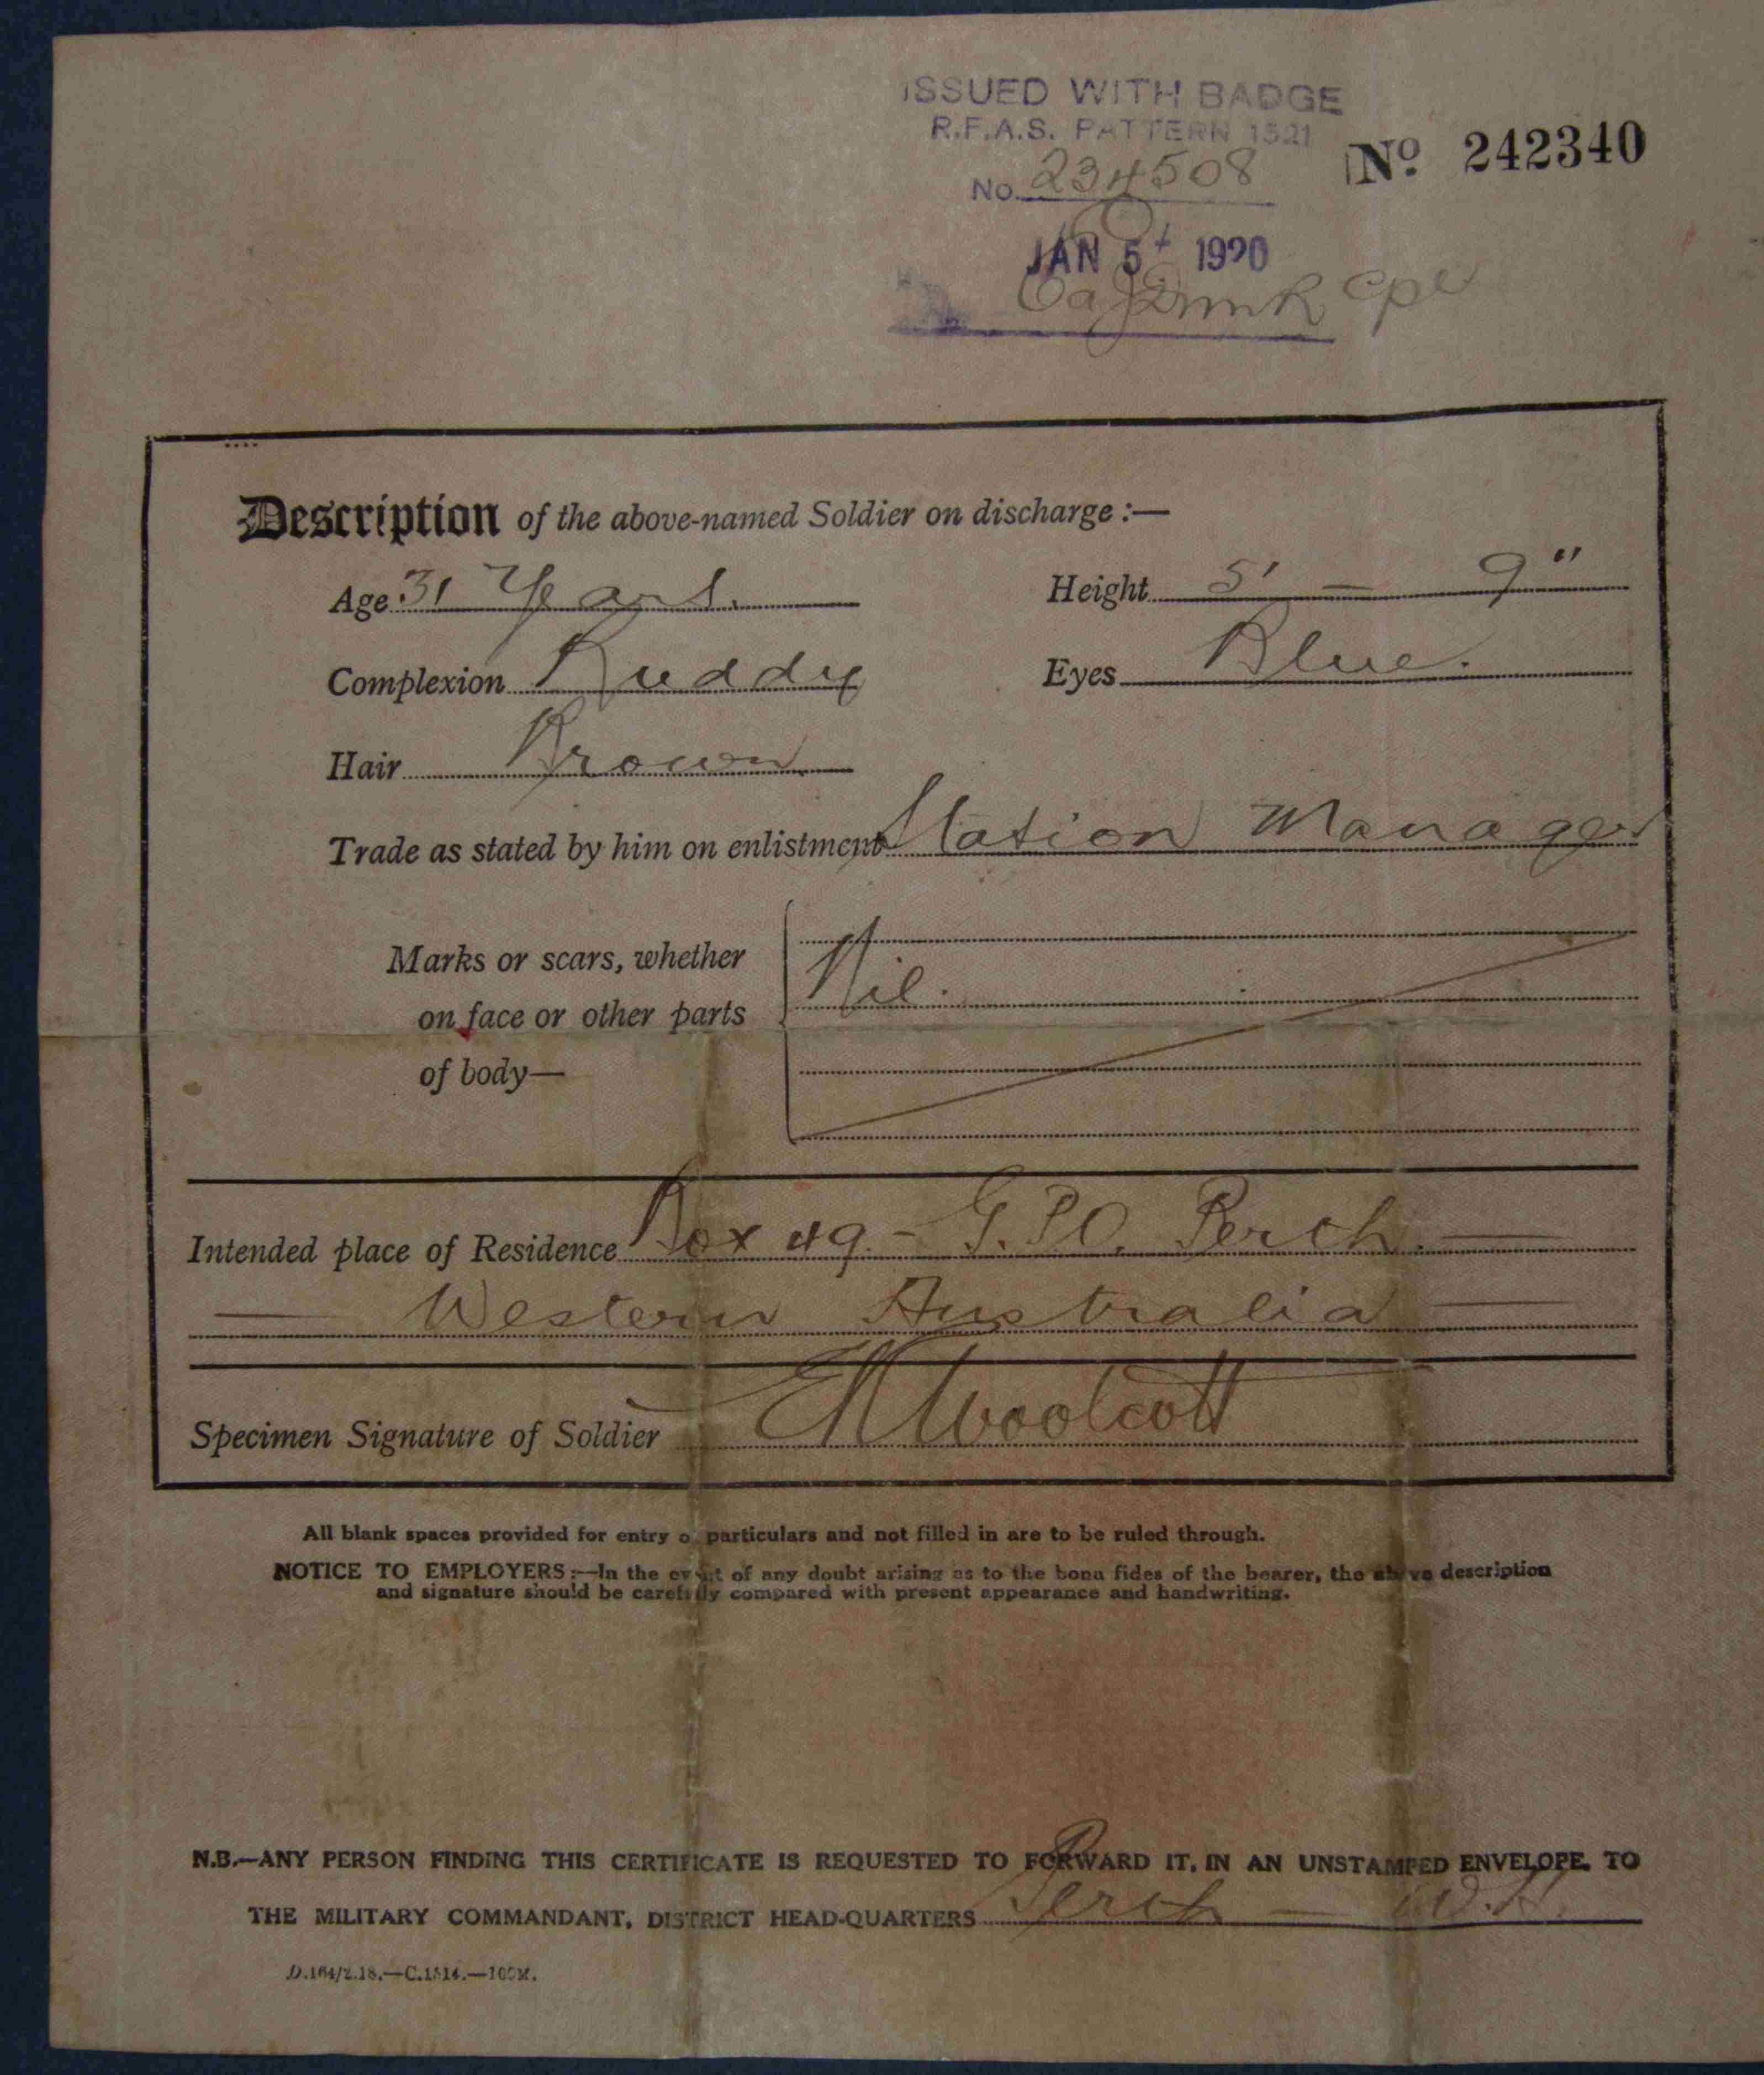 ISSUED WITH BADGE
R.F.A.S. PATTERN
No. 234508
No. 242340
JAN 5 1920
Cpl
Description of the above-named Soldier on discharge :—
Age 31 Years. Height 5' — 9"
Complexion Ruddy Eyes Blue.
Hair Brown
Trade as stated by him on enlistment Station Manager
Marks or scars, whether
on face or other parts Nil.
of body—
Intended place of Residence Box 49 - G.P.O. Perth. —
— Western Australia —
Specimen Signature of Soldier Woolcott
All blank spaces provided for entry of particulars and not filled in are to be ruled through.
NOTICE TO EMPLOYERS :—In the event of any doubt arising as to the bona fides of the bearer, the above description
and signature should be carefully compared with present appearance and handwriting.
N.B.—ANY PERSON FINDING THIS CERTIFICATE IS REQUESTED TO FORWARD IT, IN AN UNSTAMPED ENVELOPE, TO
THE MILITARY COMMANDANT, DISTRICT HEAD-QUARTERS Perth — W.A.